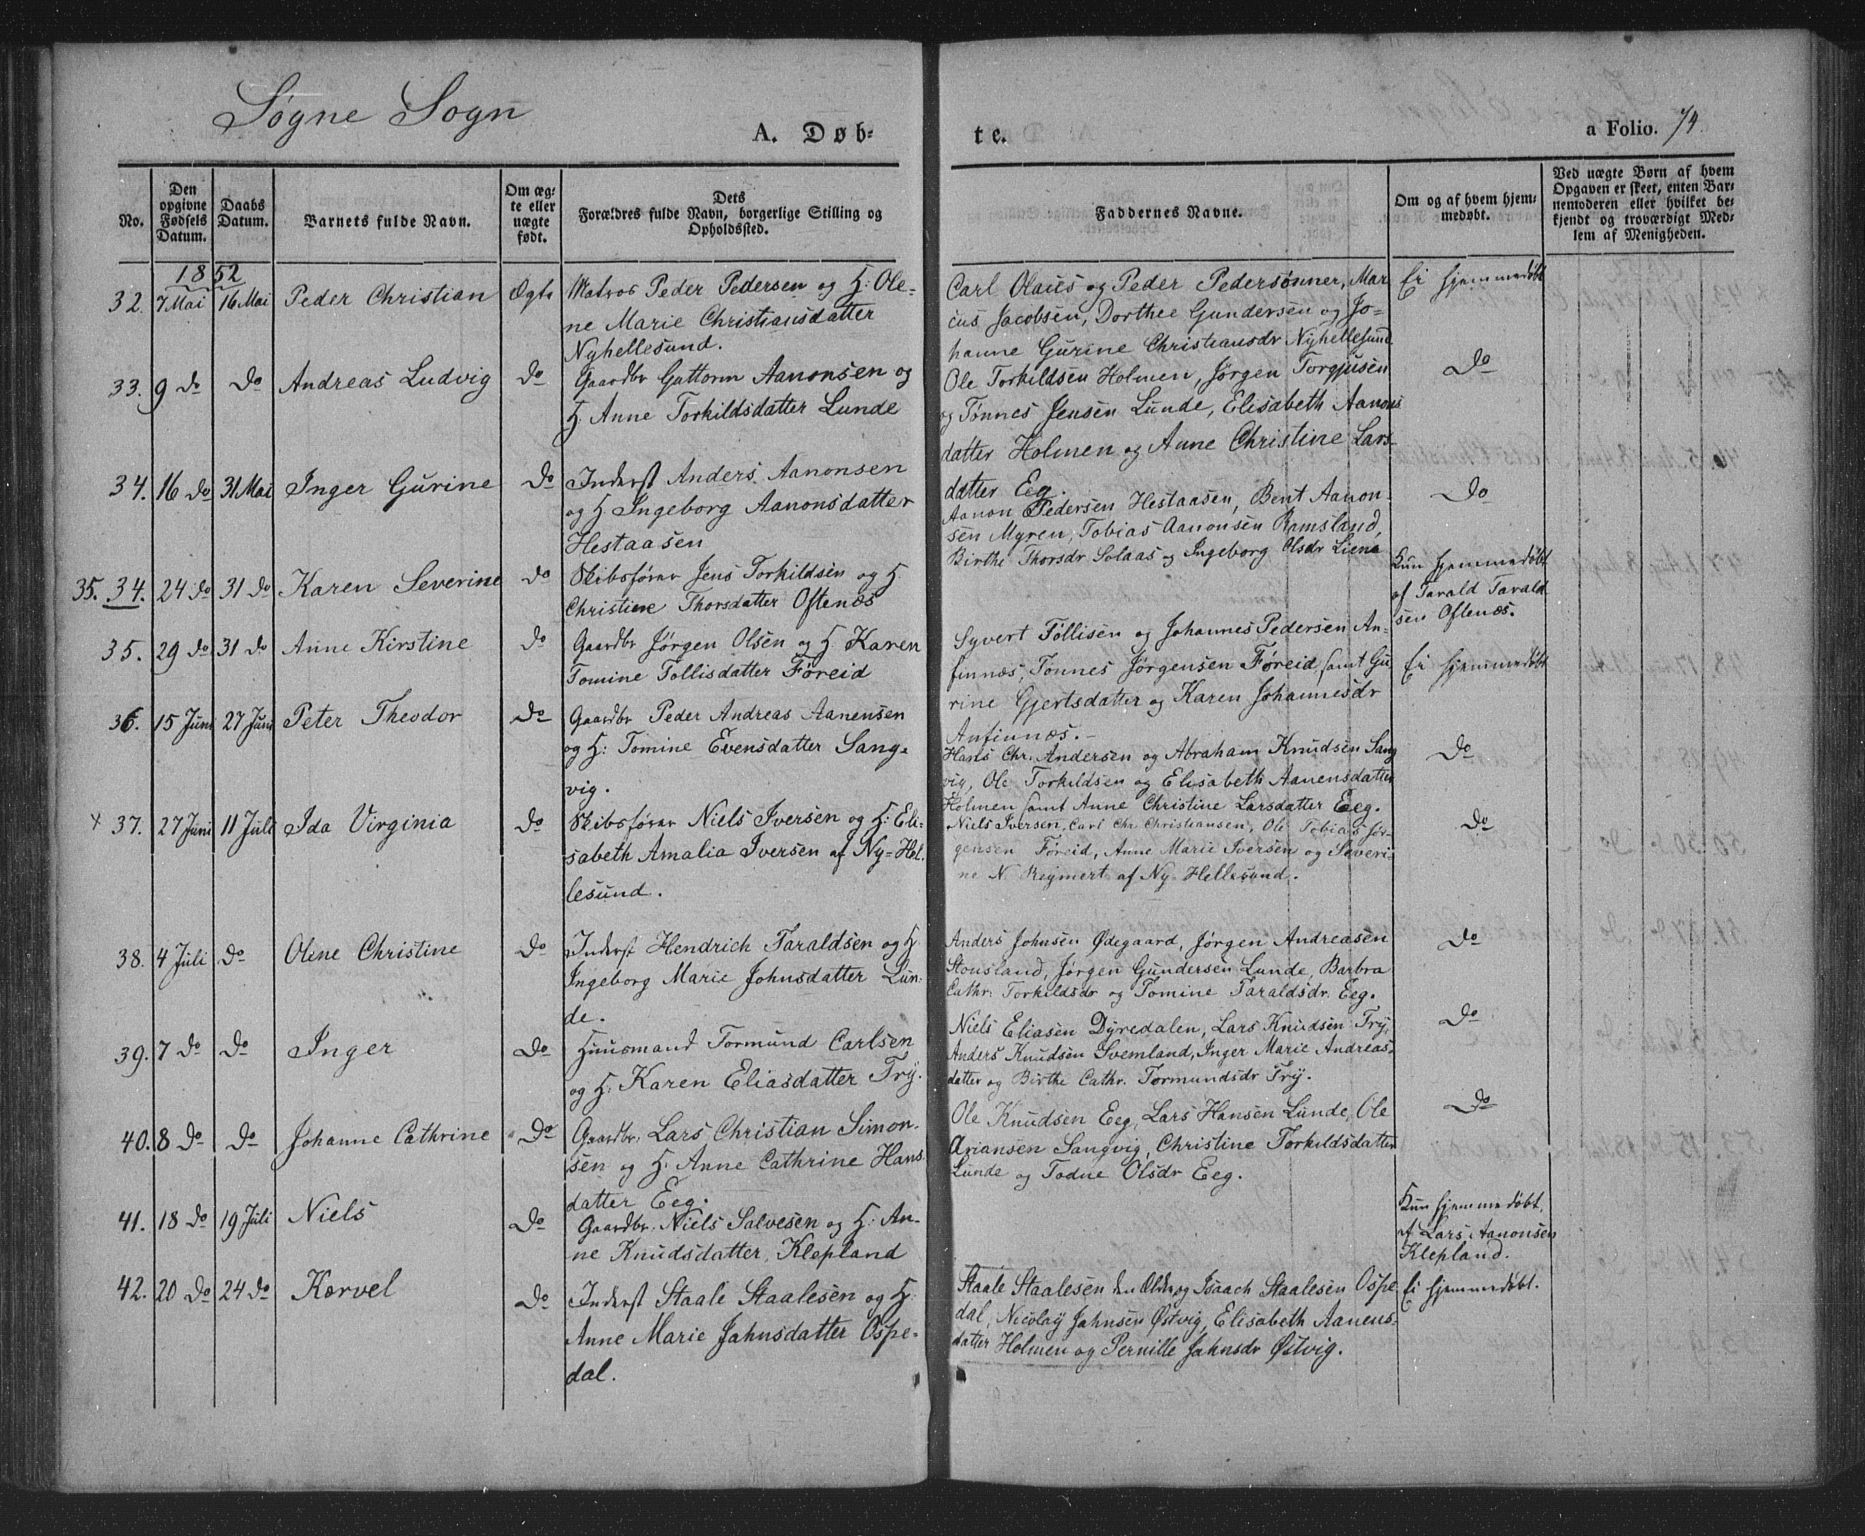 Søgne Sogn
A. Døb-
te.
a Folio. 74.
No.
Den opgivne Fødsels Datum.
Daabs Datum.
Barnets fulde Navn.
Om æg-
te eller
uægte
født.
Dets
Forældres fulde Navn, borgerlige Stilling og
Opholdssted.
Faddernes Navne.
Om og af hvem hjem-
medøbt.
Ved uægte Børn af hvem
Opgaven er skeet, enten Bar-
nemoderen eller hvilket be-
kjendt og troværdigt Med-
lem af Menigheden.
1852
32. 7 Mai 16 Mai Peder Christian Ægte Matros Peder Pedersen og H. Ole-
ne Marie Christiansdatter
Nyhellesund.
Carl Olaus og Peder Pedersønner, Mar
cus Jacobsen, Dorthee Gundersen og Jo-
hanne Gurine Christiansdr Nyhellesund
Ei hjemmedøbt
33. 9 do do Andreas Ludvig do Gaardbr Gattorm Aanonsen og
H. Anne Torkildsdatter Lunde
Ole Torkildsen Holmen, Jørgen Torgjusen
og Tønnes Jensen Lunde, Elisabeth Aanons
datter Holmen og Anne Christine Lars
datter Eeg.
do
34. 16 do 31 Mai Inger Gurine do Inderst Anders Aanonsen
og H Ingeborg Aanonsdatter
Hestaasen
Aanon Pedersen Hestaasen, Bent Aanon-
sen Myren, Tobias Aanonsen Ramsland,
Birthe Thorsdr Solaas og Ingeborg Olsdr Liene
do
35. 34. 24 do 31 do Karen Severine do Skibsfører Jens Torkildsen og H.
Christine Thorsdatter Oftenæs
Kun hjemmedøbt
af Tarald Tarald
sen Oftenæs.
35. 29 do 31 do Anne Kirstine do Gaardbr Jørgen Olsen og H Karen
Tomine Tollisdatter Føreid
Syvert Føllisen og Johannes Pedersen An-
finnæs, Tønnes Jørgensen Føreid, samt Gu
rine Gjertsdatter og Karen Johannesdr
Anfinnæs.-
Ei hjemmedøbt
36. 15 Juni 27 Juni Peter Theodor do Gaardbr Peder Andreas Aanensen
og H: Tomine Evensdatter Sang-
vig.
Hans Chr. Andersen og Abraham Knudsen Sang
vig, Ole Torkildsen og Elisabeth Aanensdatter
Holmen samt Anne Christine Larsdatter Eeg.
do
x 37. 27 Juni 11 Juli Ida Virginia do Skibsfører Niels Iversen og H: Eli-
sabeth Amalia Iversen af Ny-Hel
lesund.
Niels Iversen, Carl Chr. Christiansen, Ole Tobias Jør-
gensen Føreid, Anne Marie Iversen og Severi-
ne N. Regmert af Ny Hellesund.
do
38. 4 Juli do Oline Christine do Inderst Hendrich Taraldsen og H.
Ingeborg Marie Johnsdatter Lun-
de.
Anders Johnsen Ødegaard, Jørgen Andreasen
Stousland, Jørgen Gundersen Lunde, Barbra
Cathr: Torkildsdr og Tomine Taraldsdr. Eeg.
do
39. 7 do do Inger do Huusmand Tormund Carlsen
og H. Karen Eliasdatter Try.
Niels Eliasen Dyredalen, Lars Knudsen Try,
Anders Knudsen Svemland, Inger Marie Andreas-
datter og Birthe Cathr. Tormundsdr Try.
do
40. 8 do do Johanne Cathrine do Gaardbr. Lars Christian Simon-
sen og H. Anne Cathrine Hans
datter Eeg.
Ole Knudsen Eeg, Lars Hansen Lunde, Ole
Ariansen Sangvig, Christine Torkildsdatter
Lunde og Todne Olsdr Eeg.
do
41. 18 do 19 Juli Niels do Gaardbr. Niels Salvesen og H: An-
ne Knudsdatter, Klepland
Kun hjemmedøbt,
af Lars Aanonsen
Klepland.
42. 20 do 24 do Korvel do Inderst Staale Staalesen og H:
Anne Marie Jahnsdatter Ospe-
dal.
Staale Staalesen den Ældre og Isaach Staalesen Ospe
dal, Nicolay Jahnsen Østvig, Elisabeth Aanens-
datter Holmen og Pernille Jahnsdr Østvig.
Ei hjemmedøbt.